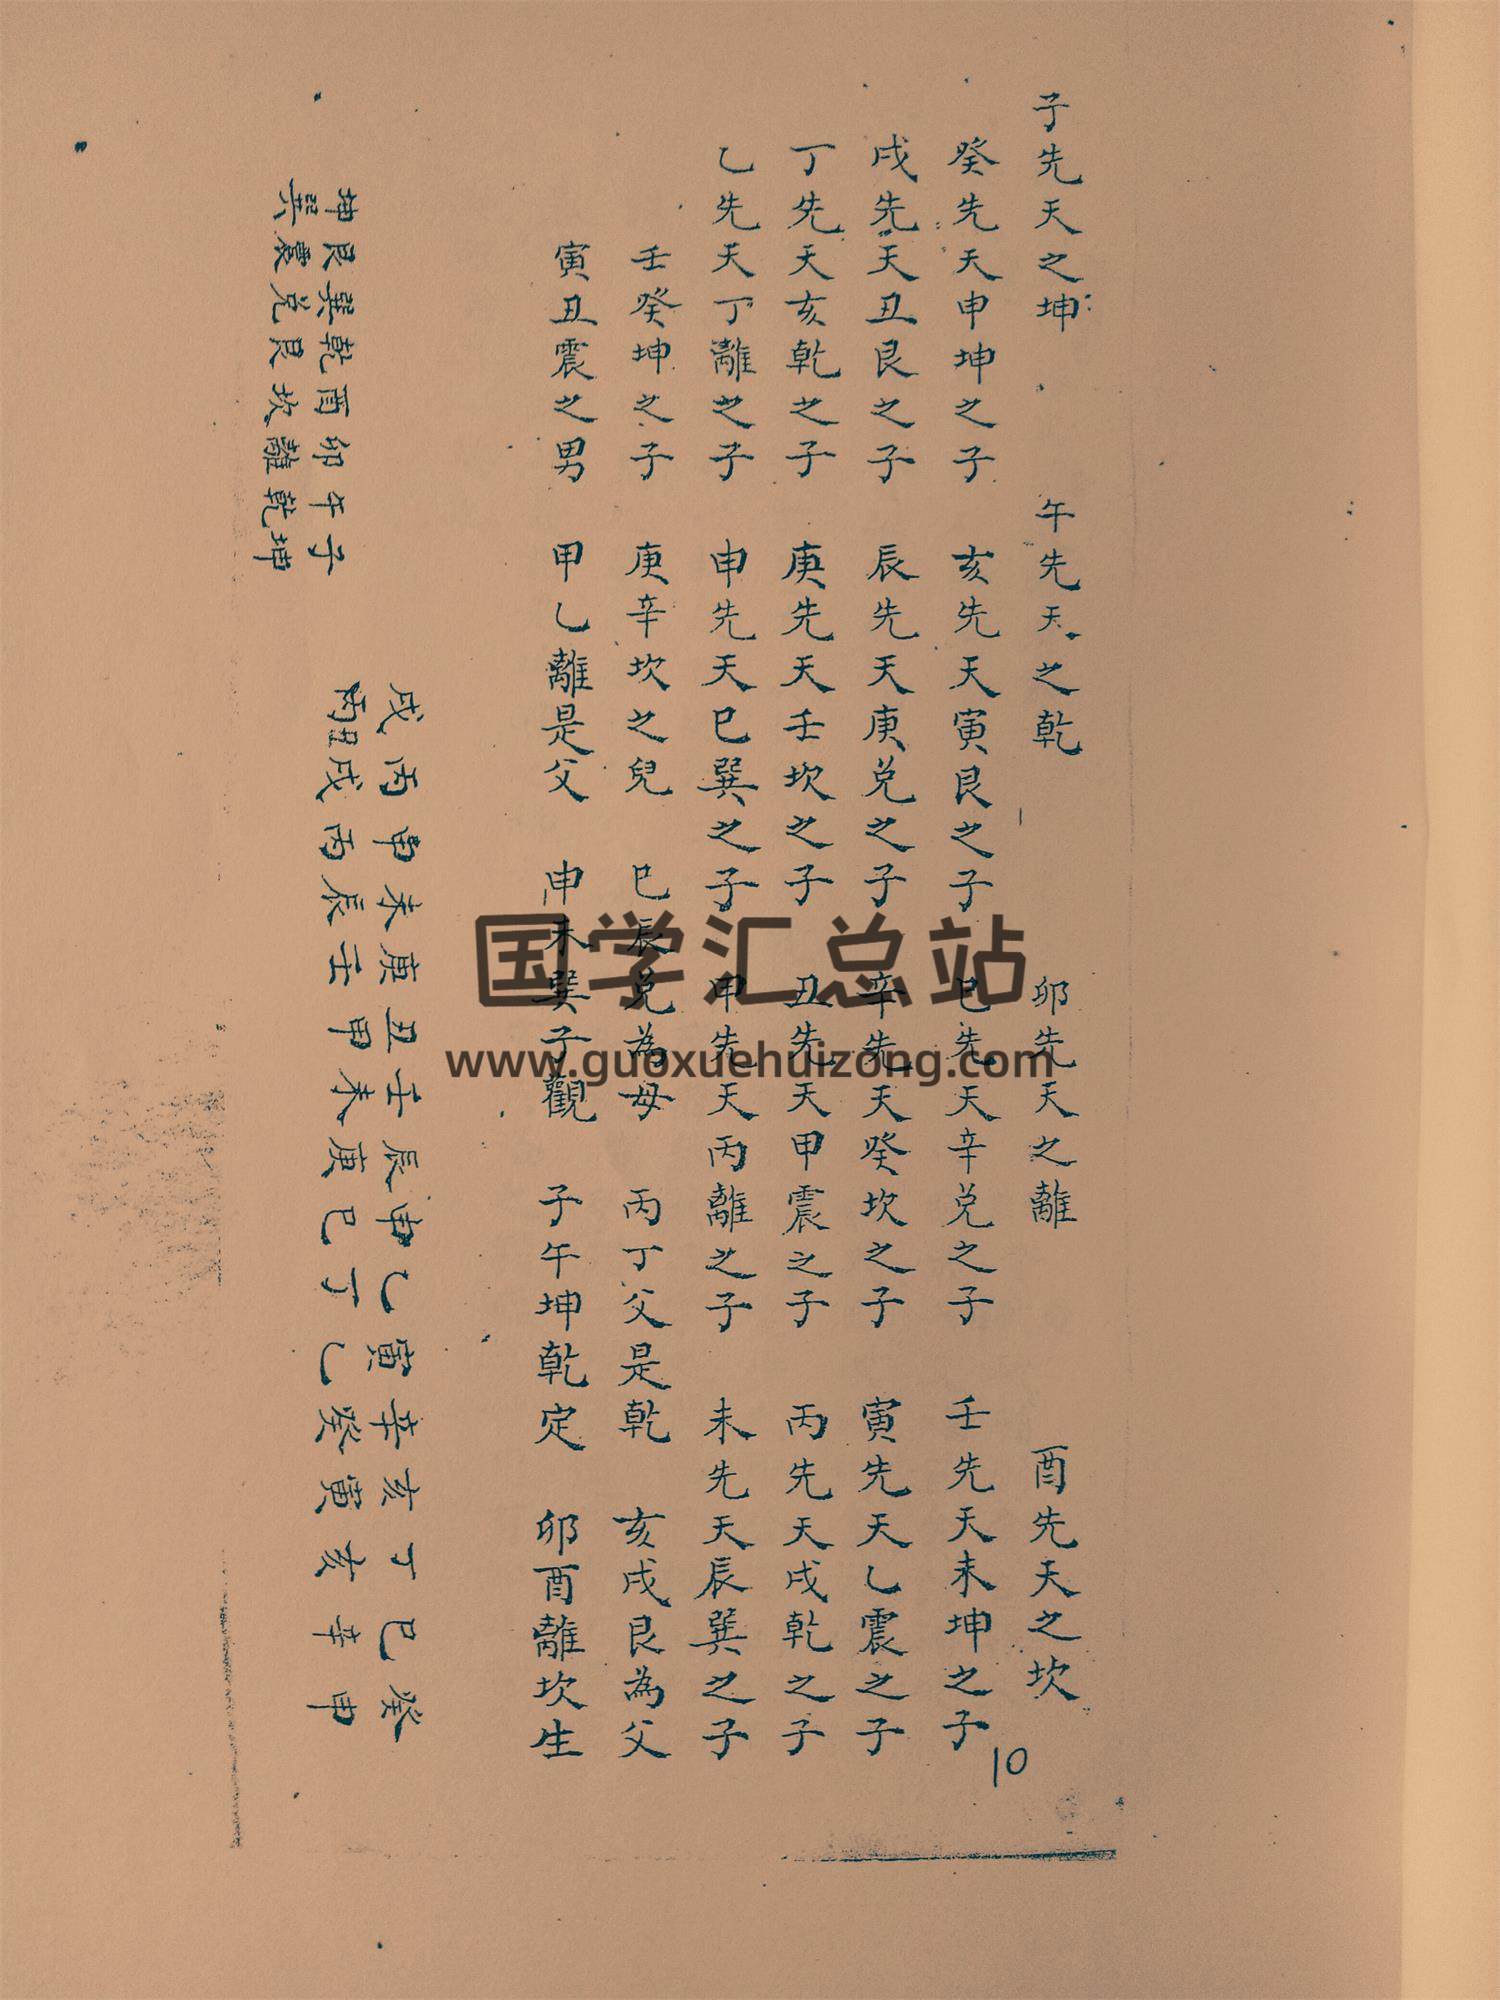 子先天之坤 午先天之乾 卯先天之離 酉先天之坎
癸先天申坤之子 亥先天寅艮之子 巳先天辛兌之子 壬先天未坤之子
戌先天丑艮之子 辰先天庚兌之子 辛先天癸坎之子 寅先天乙震之子
丁先天亥乾之子 庚先天壬坎之子 丑先天甲震之子 丙先天戌乾之子
乙先天丁離之子 申先天巳巽之子 甲先天丙離之子 未先天辰巽之子
壬癸坤之子 庚辛坎之兒 巳辰兌為母 丙丁父是乾 亥戌艮為父
寅丑震之男 甲乙離是父 申未巽子觀 子午坤乾定 卯酉離坎生
子午卯酉乾巽艮坤
坤乾離坎艮兌震巽
癸巳丁亥辛寅乙申辰壬丑庚未甲丙戌
申辛亥寅癸乙丁巳庚未甲壬辰丙戌丑
10
国学汇总站
www.guoxuehuizong.com